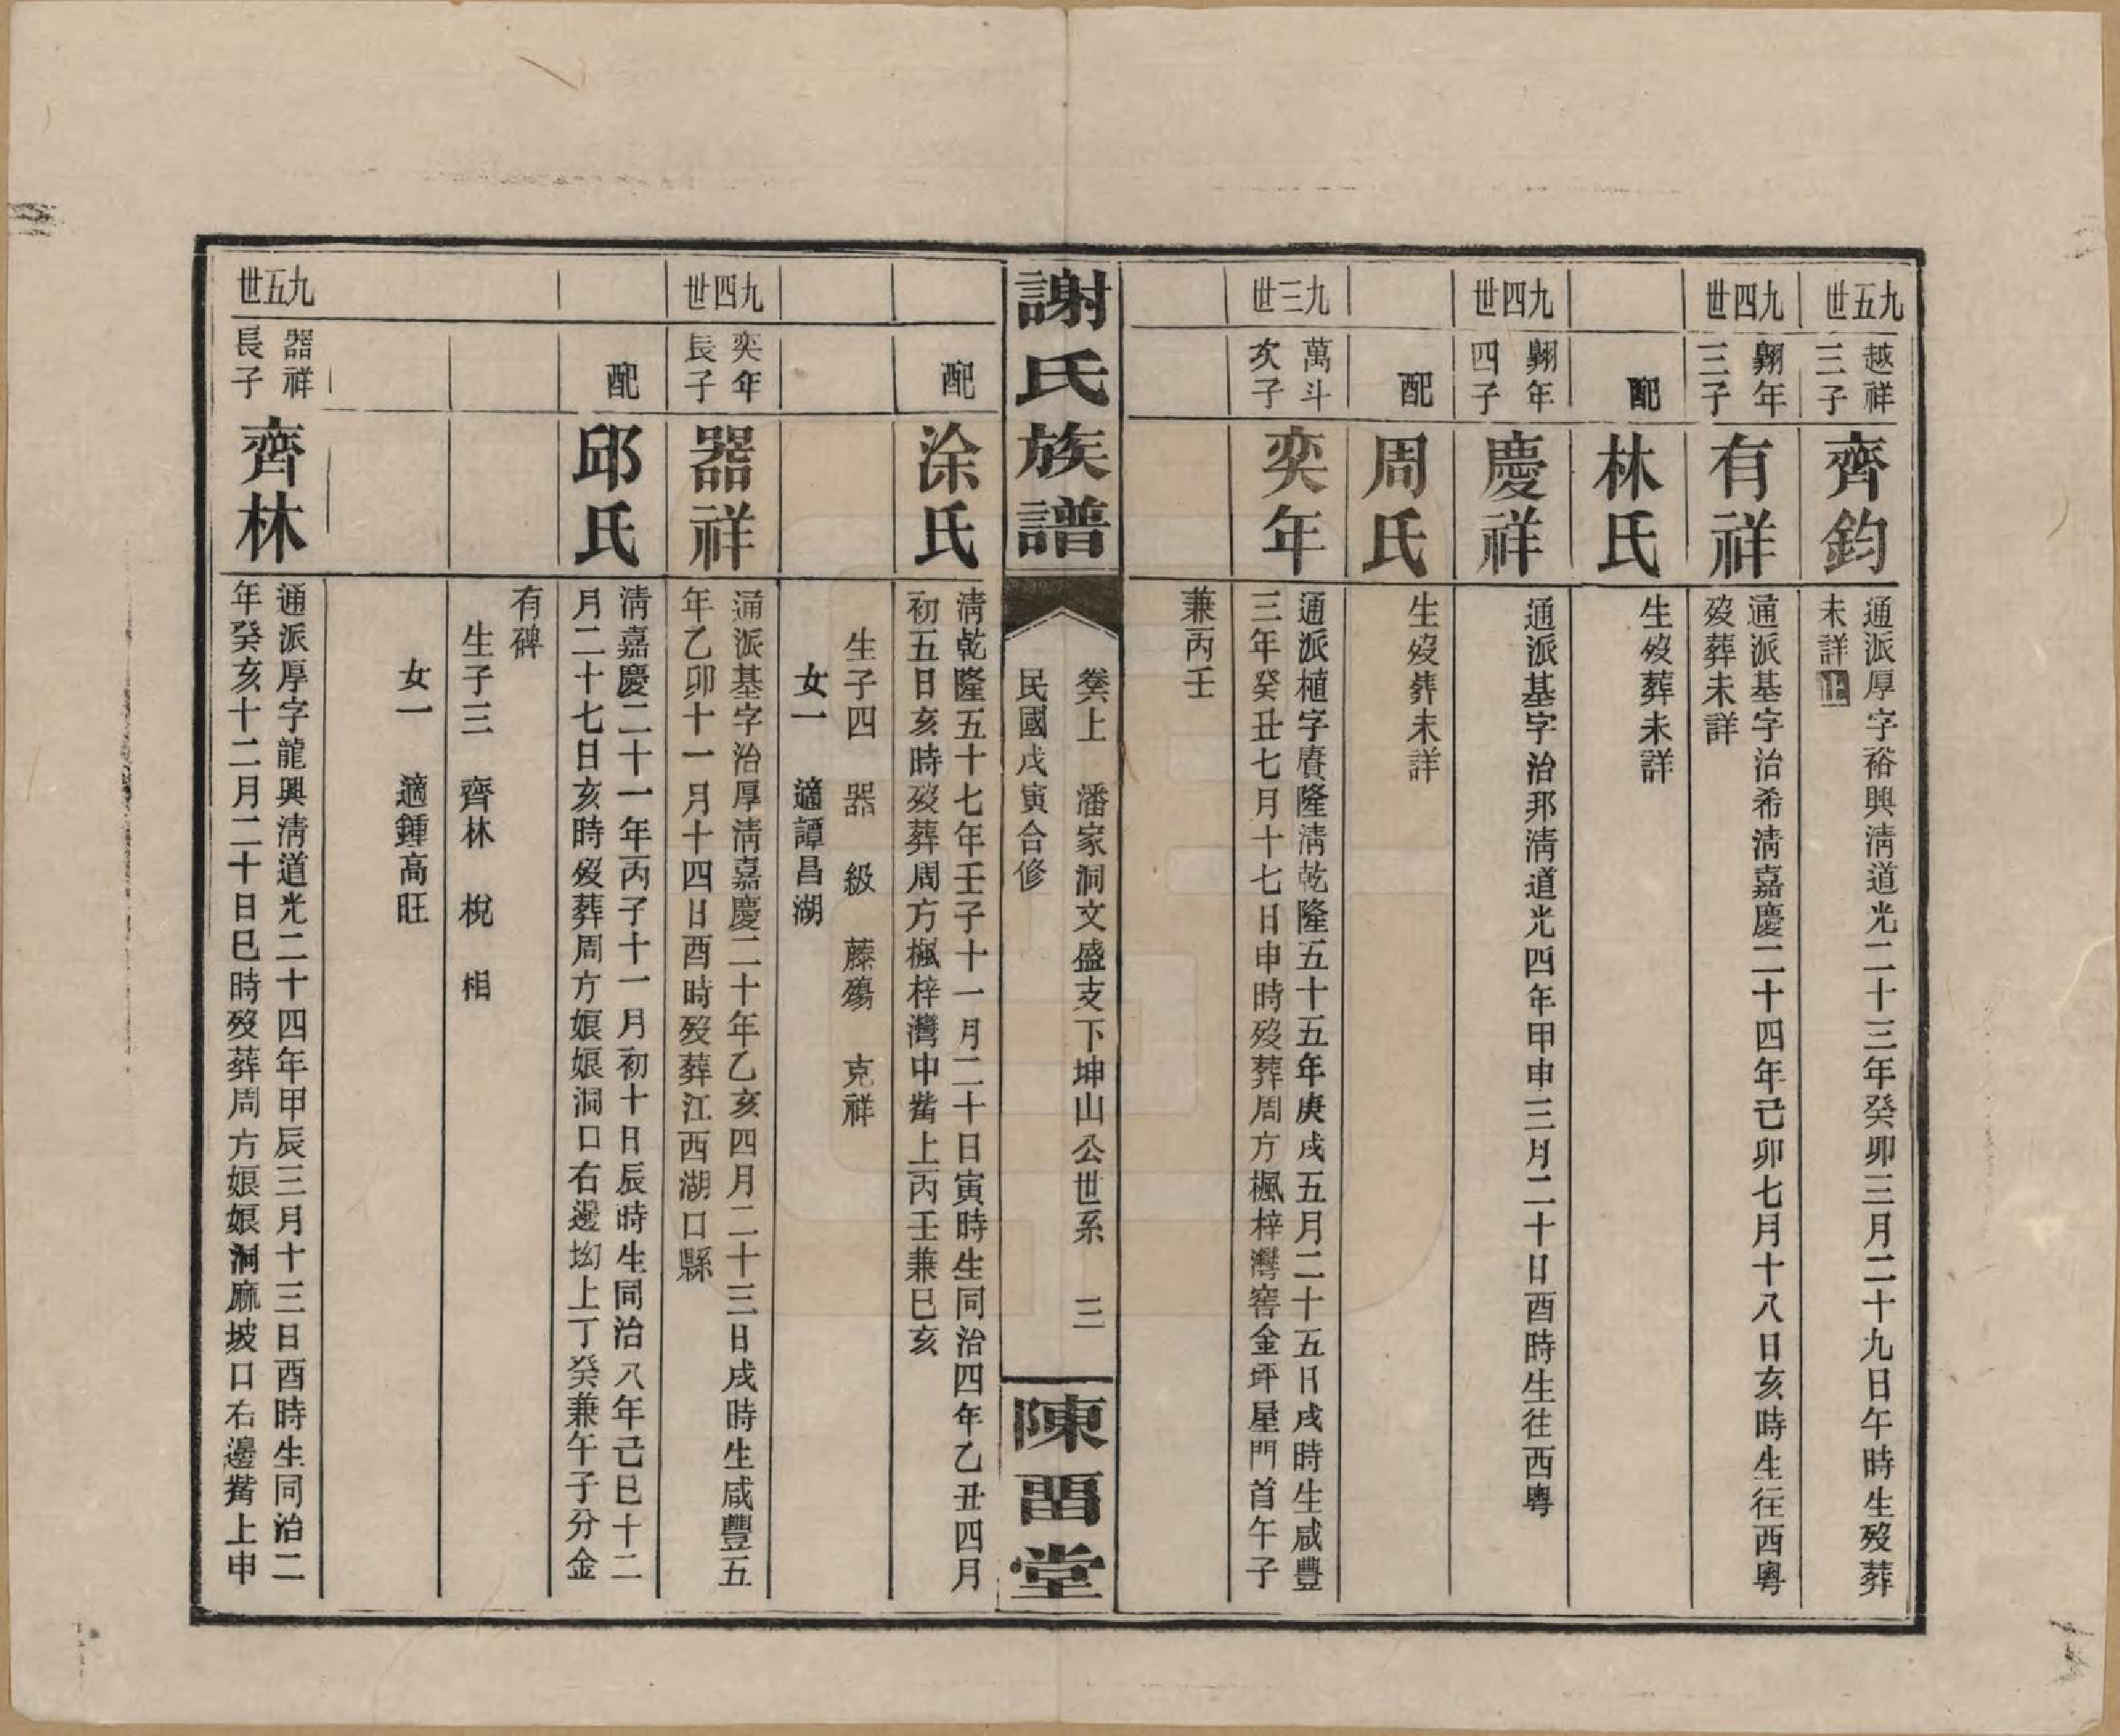 九五世
越祥
三子
齊鈞
通派厚字裕興淸道光二十三年癸卯三月二十九日午時生歿葬
未詳止
九四世
翺年
三子
有祥
通派基字治希淸嘉慶二十四年己卯七月十八日亥時生往西粵
歿葬未詳
配
林氏
生歿葬未詳
九四世
翺年
四子
慶祥
通派基字治邦淸道光四年甲申三月二十日酉時生往西粵
配
周氏
生歿葬未詳
九三世
萬斗
次子
奕年
通派植字賡隆淸乾隆五十五年庚戌五月二十五日戌時生咸豐
三年癸丑七月十七日申時歿葬周方楓梓灣窖金坪屋門首午子
兼丙壬
謝氏族譜
卷上 潘家洞文盛支下坤山公世系 三
民國戊寅合修
陳畱堂
配
涂氏
淸乾隆五十七年壬子十一月二十日寅時生同治四年乙丑四月
初五日亥時歿葬周方楓梓灣中嘴上丙壬兼巳亥
生子四 器 級 藤殤 克祥
女一 適譚昌湖
九四世
奕年
長子
器祥
通派基字治厚淸嘉慶二十年乙亥四月二十三日戌時生咸豐五
年乙卯十一月十四日酉時歿葬江西湖口縣
配
邱氏
淸嘉慶二十一年丙子十一月初十日辰時生同治八年己巳十二
月二十七日亥時歿葬周方娘娘洞口右邊坳上丁癸兼午子分金
有碑
生子三 齊林 棁 相
女一 適鍾高旺
九五世
器祥
長子
齊林
通派厚字龍興淸道光二十四年甲辰三月十三日酉時生同治二
年癸亥十二月二十日巳時歿葬周方娘娘洞麻坡口右邊嘴上申